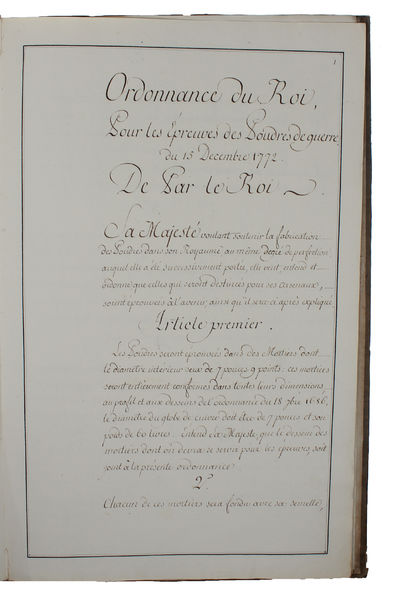 1
Ordonnance du Roi,
Pour les Epreuves des Poudres de guerre
du 15 Decembre 1772.
De Par le Roi
Sa Majesté voulant soutenir la fabrication
des Poudres dans son Royaume au même degré de perfection
auquel elle a été successivement portée, elle veut, entend et
ordonne que celles qui seront destinées pour ses arsenaux,
soient éprouvées à l'avenir, ainsi qu'il sera ci après expliqué.
Article premier.
Les Poudres seront éprouvées dans des Mortiers dont
le diametre interieur sera de 7 pouces 9 points; ces mortiers
seront entierement conformes dans toutes leurs dimensions
au profil et aux desseins de l'ordonnance du 18 7bre 1686,
le diametre du globe de cuivre doit être de 7 pouces et son
poids de 60 livres. Entend Sa Majesté, que le dessein des
mortiers dont on devra se servir pour les épreuves, soit
joint à la présente ordonnance.
2.
Chacun de ces mortiers sera fondu avec sa semelle,